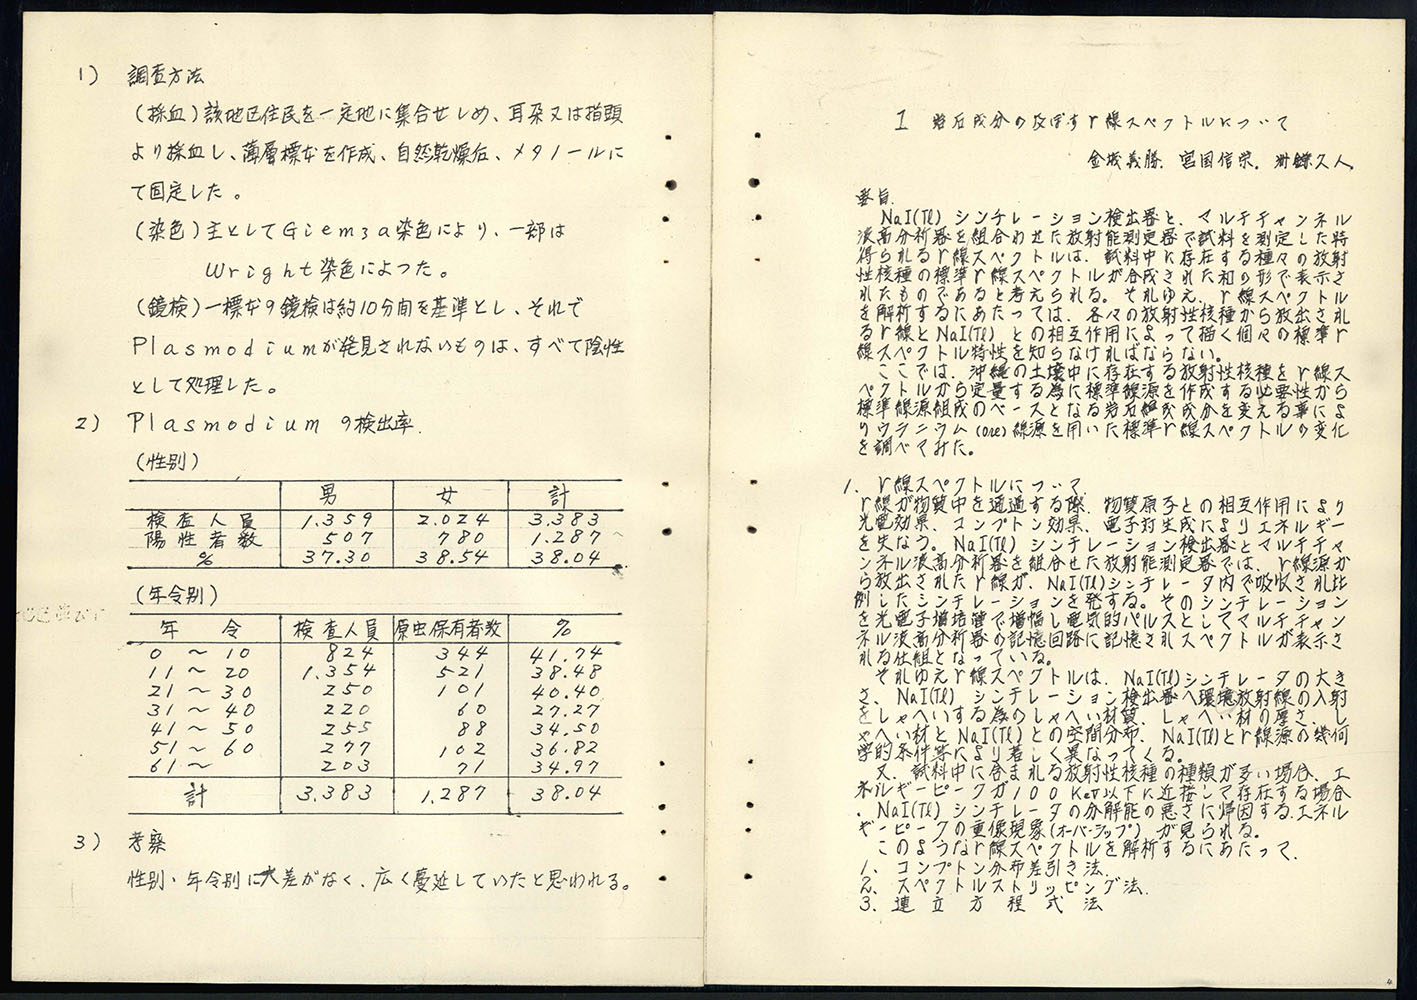 1) 調査方法
(採血)該地区住民を一定地に集合せしめ、耳朶又は指頭
より採血し、薄層標本を作成、自然乾燥后、メタノールに
て固定した。
(染色)主としてGiemsa染色により、一部は
Wright染色によつた。
(鏡検)一標本の鏡検は約10分間を基準とし、それで
Plasmodiumが発見されないものは、すべて陰性
として処理した。
2) Plasmodiumの検出率.
(性別)
男 女 計
検査人員 1.359 2.024 3.383
陽性者数 507 780 1.287
% 37.30 38.54 38.04
(年令別)
年令 検査人員 原虫保有者数 %
0~10 824 344 41.74
11~20 1.354 521 38.48
21~30 250 101 40.40
31~40 220 60 27.27
41~50 255 88 34.50
51~60 277 102 36.82
61~ 203 71 34.97
計 3.383 1.287 38.04
3) 考察
性別・年令別に大差がなく、広く蔓延していたと思われる。
I 岩石成分の及ぼすr線スペクトルについて
金城義勝. 宮国信栄. 久人.
要旨.
NaI(Tl) シンチレーション検出器と、マルチチャンネル
波高分析器を組合わせた放射能測定器で試料を測定した時
得られるr線スペクトルは、試料中に存在する種々の放射
性核種の標準r線スペクトルが合成された和の形で表示さ
れたものであると考えられる。それゆえ、r線スペクトル
を解析するにあたっては、各々の放射性核種から放出され
るr線とNaI(Tl)との相互作用によって描く個々の標準r
線スペクトル特性を知らなければならない。
ここでは、沖縄の土壌中に存在する放射性核種をr線ス
ペクトルから定量する為に標準線源を作成する必要性から
標準線源組成のベースとなる岩石組成成分を変える事によ
りウラニウム(ore)線源を用いた標準r線スペクトルの変化
を調べてみた。
1. r線スペクトルについて
r線が物質中を通過する際、物質原子との相互作用により
光電効果、コンプトン効果、電子対生成によりエネルギー
を失なう。NaI(Tl)シンチレーション検出器とマルチチャ
ンネル波高分析器を組合せた放射能測定器では、r線源か
ら放出されたr線が、NaI(Tl)シンチレータ内で吸収され比
例したシンチレーションを発する。そのシンチレーション
を光電子増培管で増幅し電気的パルスとしてマルチチャン
ネル波高分析器の記憶回路に記憶されスペクトルが表示さ
れる仕組となっている。
それゆえr線スペクトルは、NaI(Tl)シンチレータの大き
さ、NaI(Tl)シンチレーション検出器へ環境放射線の入射
をしゃへいする為のしゃへい材質、しゃへい材の厚さ、し
ゃへい材とNaI(Tl)との空間分布、NaI(Tl)とr線源の幾何
学的条件等により著しく異なってくる。
又、試料中に含まれる放射性核種の種類が多い場合、エ
ネルギーピークが100KeV以下に近接して存在する場合
、NaI(Tl)シンチレータの分解能の悪さに帰因するエネル
ギーピークの重像現象(オーバーラップ)が見られる。
このようなr線スペクトルを解析するにあたって、
1. コンプトン分布差引き法.
2. スペクトルストリッピング法.
3. 連立方程式法
4